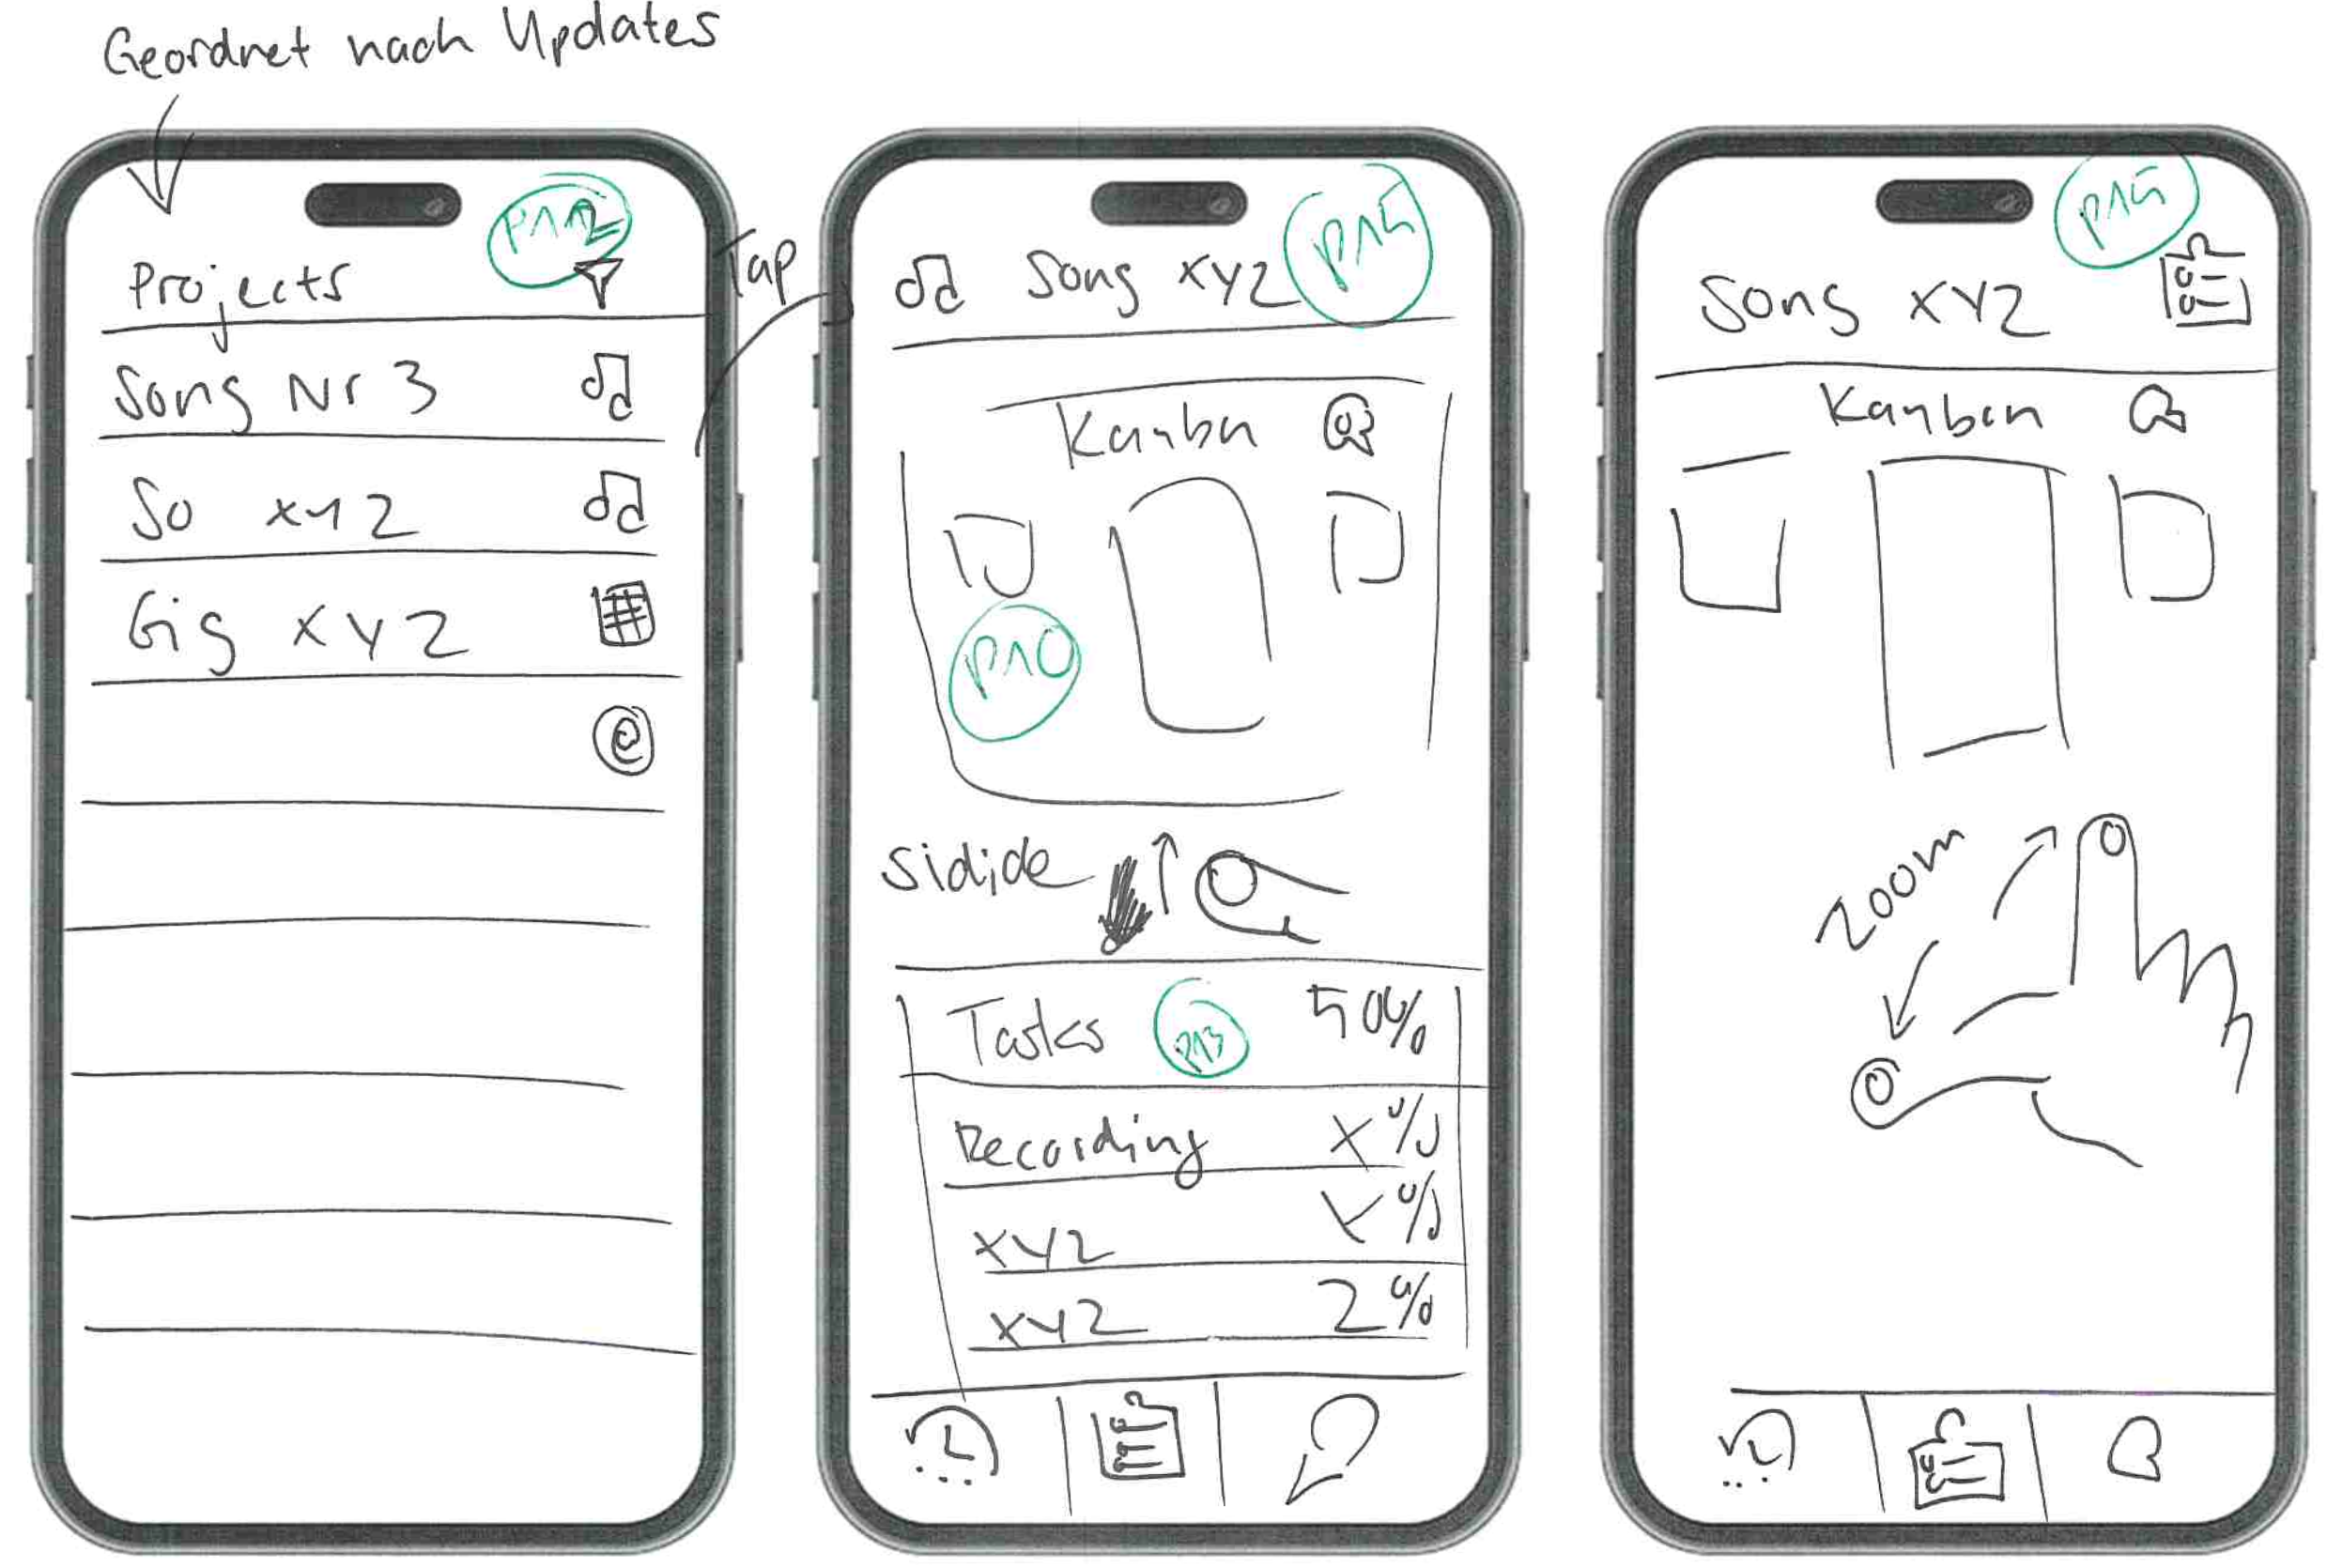 Geordnet nach Updates
Projects
P112
Song Nr 3
So xyz
Gig XYZ
@
Tap
Song XYZ
P15
Kanban
P10
Slide
Tasks P13 50%
Recording X%
XYZ Y%
XYZ Z%
P15
Song XYZ
Kanban
Zoom